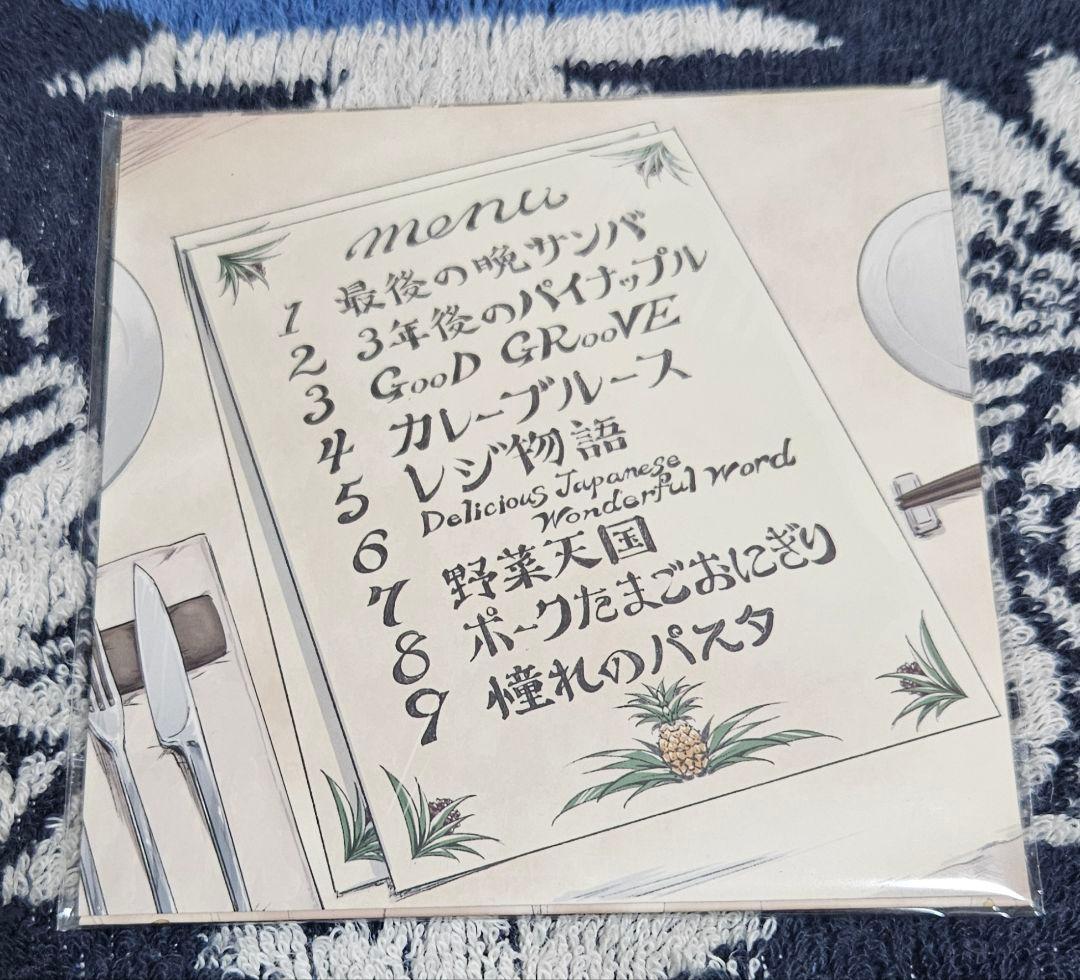 menu
1 最後の晩サンバ
2 3年後のパイナップル
3 GooD GRooVE
4 カレーブルース
5 レジ物語
6 Delicious Japanese
Wonderful Word
7 野菜天国
8 ポークたまごおにぎり
9 憧れのパスタ